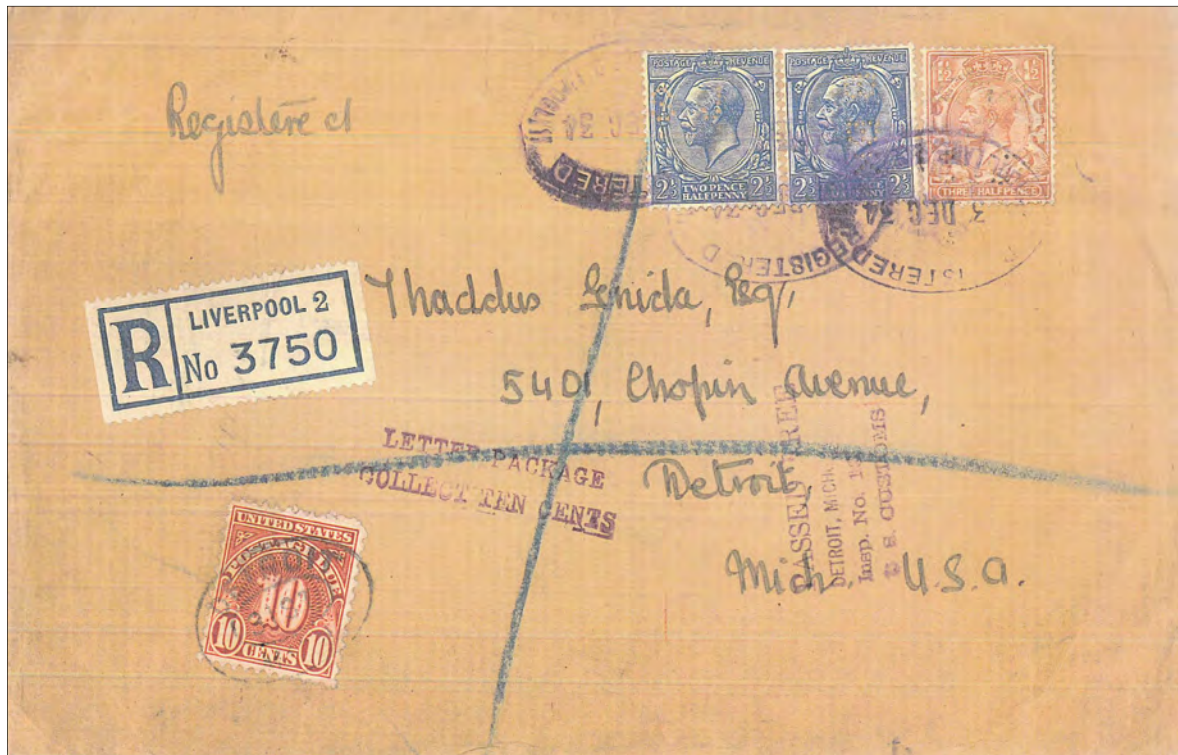 Registered
POSTAGE REVENUE
2½ TWO PENCE HALFPENNY 2½
POSTAGE REVENUE
2½ 2½
1½ 1½
THREE HALFPENCE
REGISTERED
DEC 34
REGISTERED
3 DEC 34
REGISTERED
R LIVERPOOL 2
No 3750
Esq.
5401, Chopin Avenue,
Detroit,
Mich. U.S.A.
LETTER PACKAGE
COLLECT TEN CENTS
PASSED FREE
DETROIT, MICH.
Insp. No.
U. S. CUSTOMS
UNITED STATES
POSTAGE DUE
10
10 CENTS 10